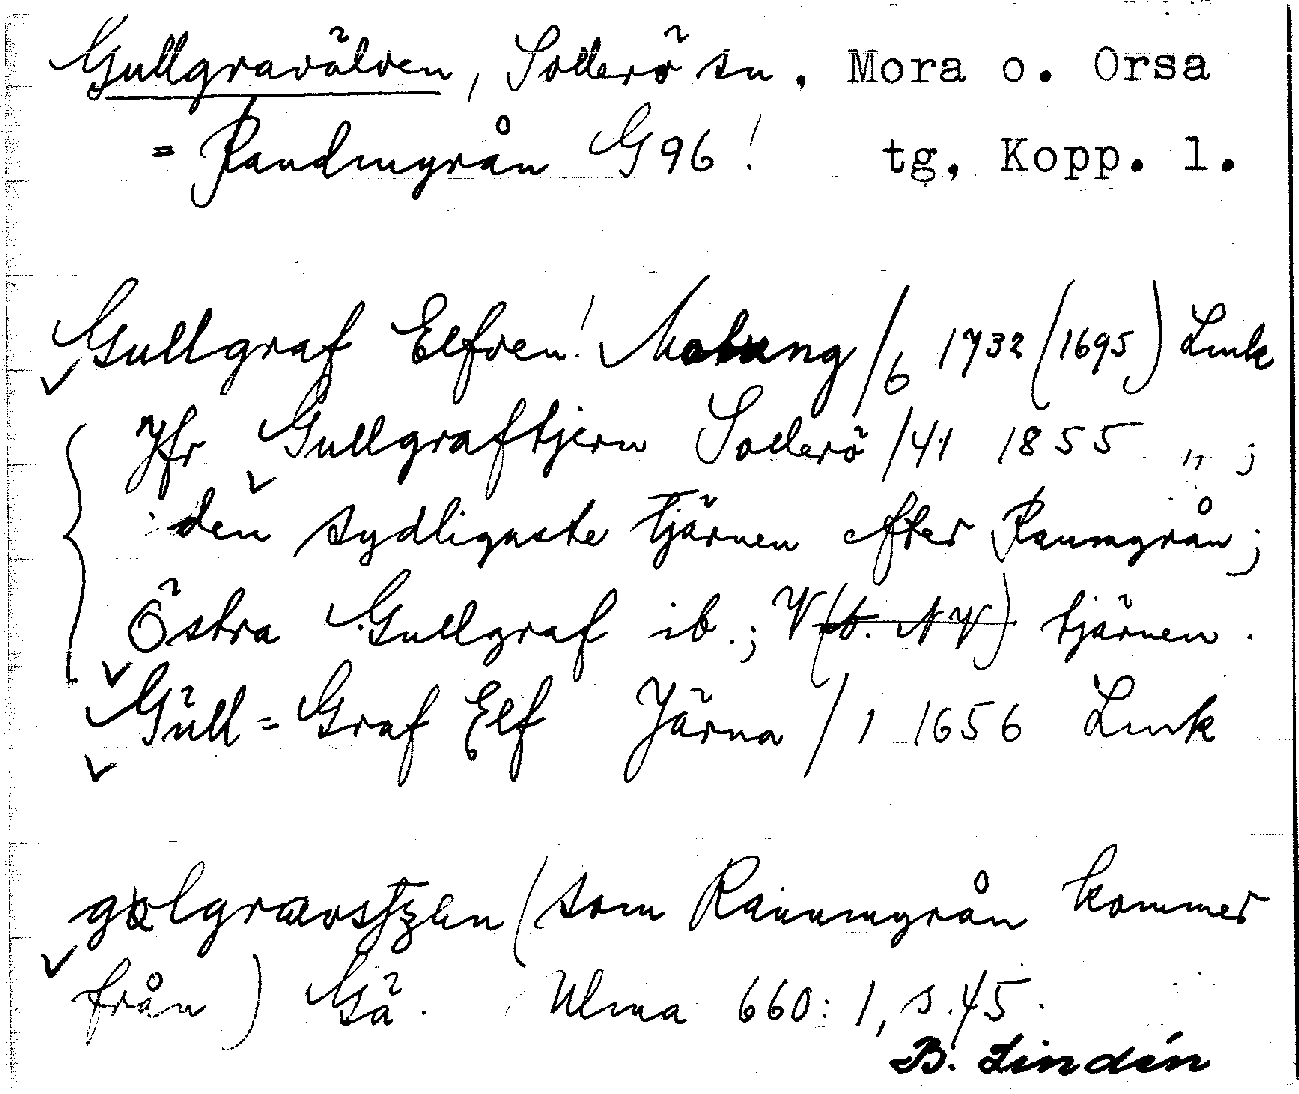 Gullgravälven, Sollerö sn. Mora o. Orsa
= Randmyrån G96! tg, Kopp. l.
Gullgraf Elfven! Malung/6 1732 (1695) Lmk
Jfr Gullgraftjern Sollerö/41 1855 „ ;
den sydligaste tjärnen efter Ranmyrån;
Östra Gullgraf ib.; V (t. NV) tjärnen.
Gull=Graf Elf Järna/1 1656 Lmk
(som Rannmyrån kommer
från) Gä. Ulma 660:1, s.45.
B. Lindén